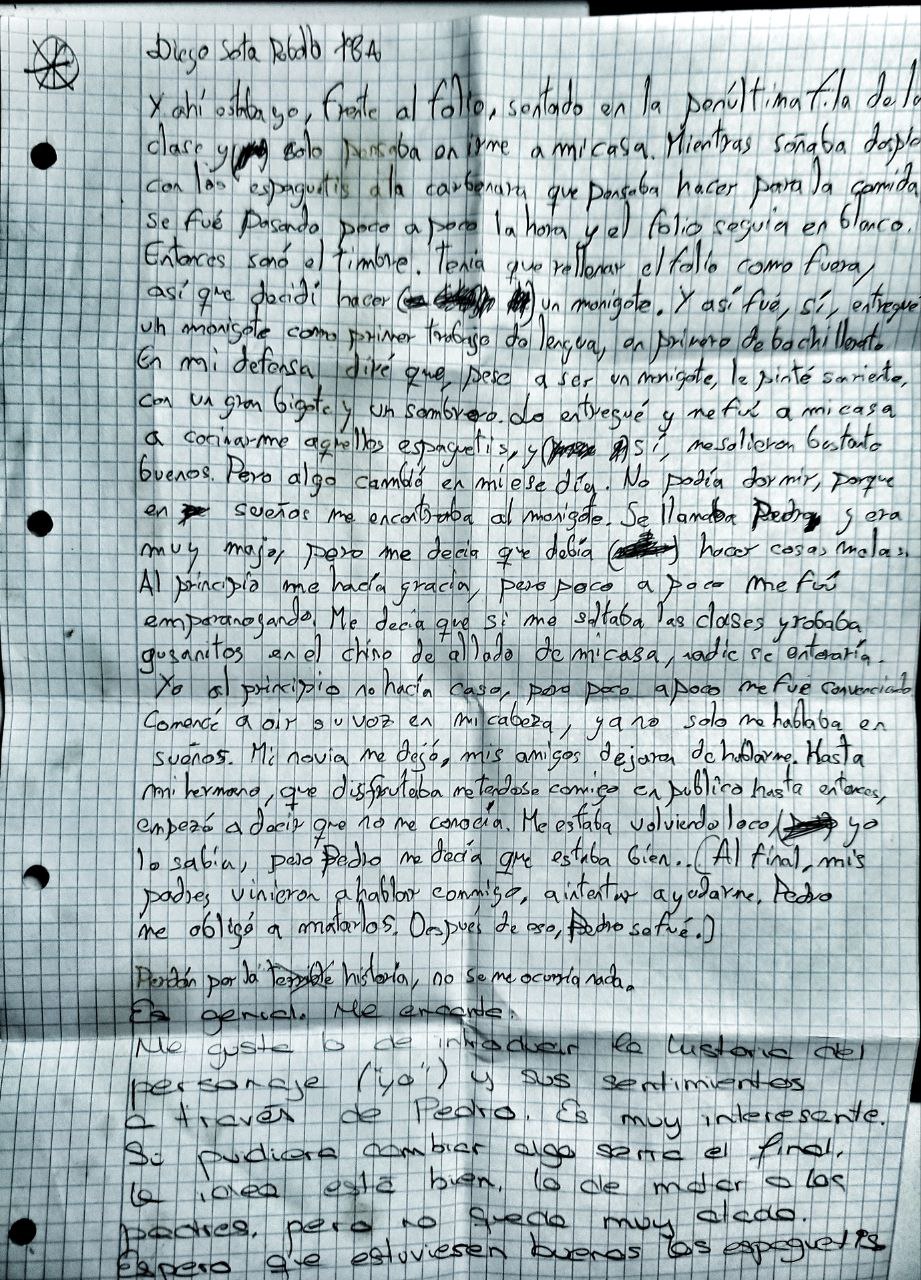 Diego Sota Rebollo 1ºBA
Y ahí estaba yo, frente al folio, sentado en la penúltima fila de la
clase y solo pensaba en irme a mi casa. Mientras soñaba despie
con los espaguetis a la carbonara que pensaba hacer para la comida
se fué pasando poco a poco la hora y el folio seguía en blanco.
Entonces sonó el timbre. Tenía que rellenar el folio como fuera,
así que decidí hacer un monigote. Y así fué, sí, entregué
un monigote como primer trabajo de lengua, en primero de bachillerato.
En mi defensa diré que, pese a ser un monigote, le pinté sonriente,
con un gran bigote y un sombrero. Lo entregué y me fuí a mi casa
a cocinarme aquellos espaguetis, y sí, me salieron bastante
buenos. Pero algo cambió en mí ese día. No podía dormir, porque
en sueños me encontraba al monigote. Se llamaba Pedro y era
muy majo, pero me decía que debía hacer cosas malas.
Al principio me hacía gracia, pero poco a poco me fuí
emparanoyando. Me decía que si me saltaba las clases y robaba
gusanitos en el chino de al lado de mi casa, nadie se enteraría.
Yo al principio no hacía caso, pero poco a poco me fué convenciendo
Comencé a oir su voz en mi cabeza, ya no solo me hablaba en
sueños. Mi novia me dejó, mis amigos dejaron de hablarme. Hasta
mi hermano, que disfrutaba metiendose conmigo en público hasta entonces,
empezó a decir que no me conocía. Me estaba volviendo loco, yo
lo sabía, pero Pedro me decía que estaba bien... (Al final, mis
padres vinieron a hablar conmigo, a intentar ayudarme. Pedro
me obligó a matarlos. Después de eso, Pedro se fué.)
Perdón por la terrible historia, no se me ocurría nada.
Es genial. Me encanta.
Me gusta lo de introducir la historia del
personaje ("yo") y sus sentimientos
a través de Pedro. Es muy interesante.
Si pudiera cambiar algo sería el final,
la idea está bien, lo de matar a los
padres, pero no queda muy
Espero que estuviesen buenos los espaguetis